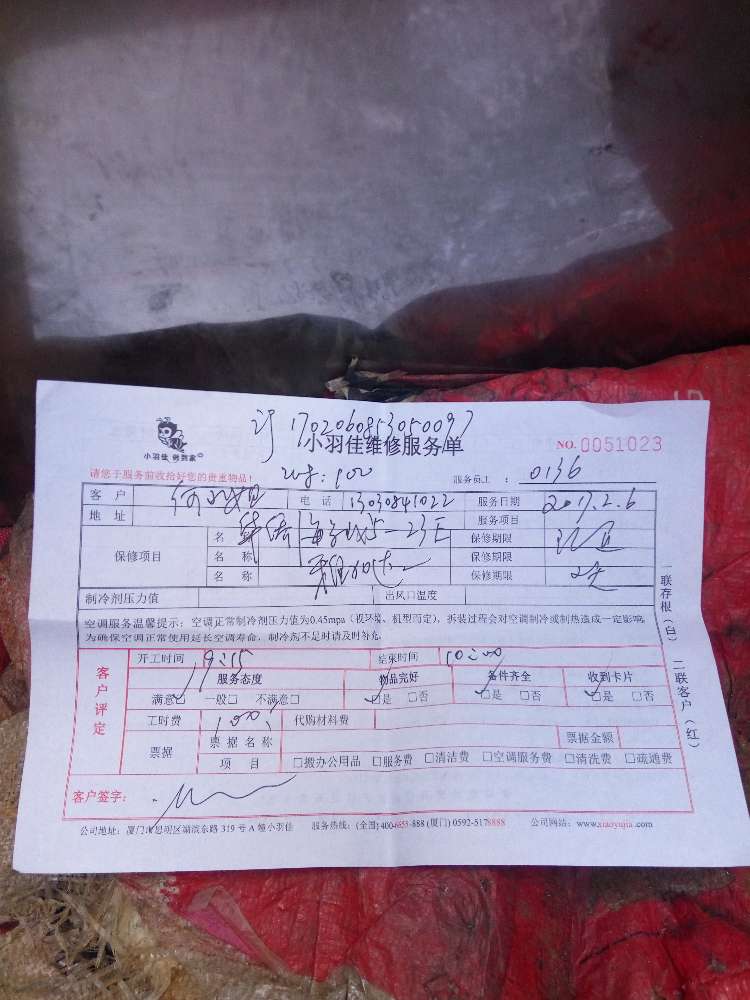 订 1702060853050097
小羽佳 到到家
小羽佳维修服务单
NO. 0051023
请您于服务前收拾好您的贵重物品！
服务员工： 0136
客户 电话 13030841022 服务日期 2017.2.6
地址 服务项目
保修项目 名称 保修期限
名称 保修期限
名称 保修期限
制冷剂压力值 出风口温度
空调服务温馨提示：空调正常制冷剂压力值为0.45mpa（视环境、机型而定），拆装过程会对空调制冷或制热造成一定影响，
为确保空调正常使用延长空调寿命，制冷剂不足时请及时补充。
客户评定
开工时间 9:15 结束时间 10:00
服务态度 物品完好 备件齐全 收到卡片
满意□ 一般□ 不满意□ □是 □否 □是 □否 □是 □否
工时费 100 代购材料费
票据 票据名称 票据金额
项目 □搬办公用品 □服务费 □清洁费 □空调服务费 □清洗费 □疏通费
客户签字：
一联存根（白） 二联客户（红）
公司地址：厦门市思明区湖滨东路 319 号 A 幢小羽佳 服务热线：(全国) 400-6653-888 (厦门) 0592-5178888 公司网站：www.xiaoyujia.com